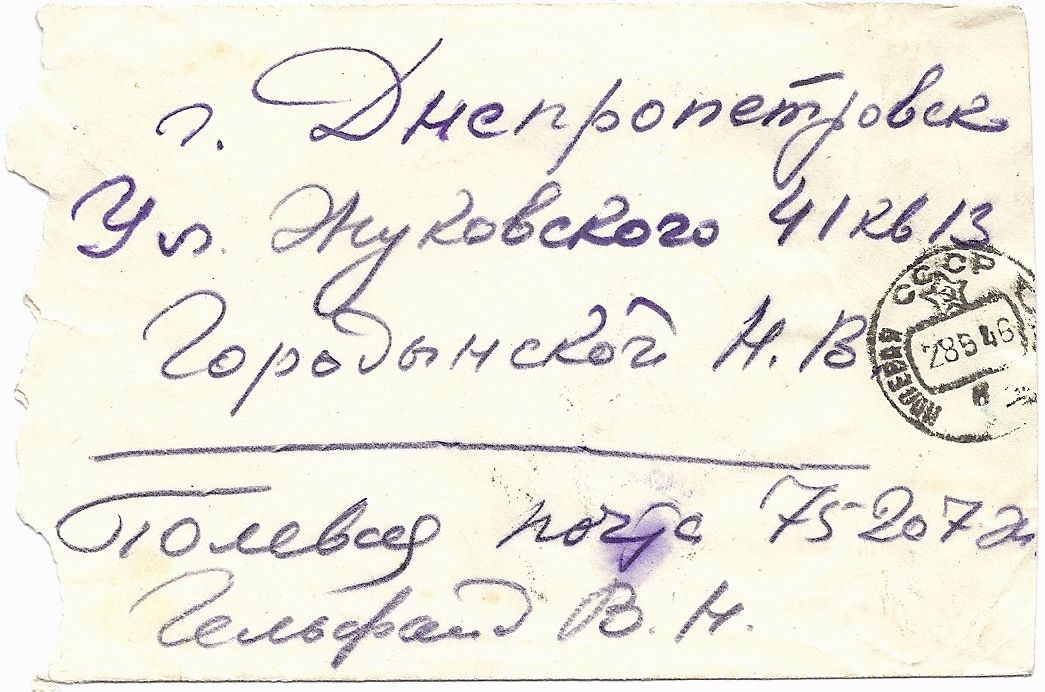 г. Днепропетровск
Ул. Жуковского 41 кв 13
Городынской Н. В.
СССР
ПОЛЕВАЯ
28 5 46
Полевая почта 75207 ж
Гельфанд В. Н.